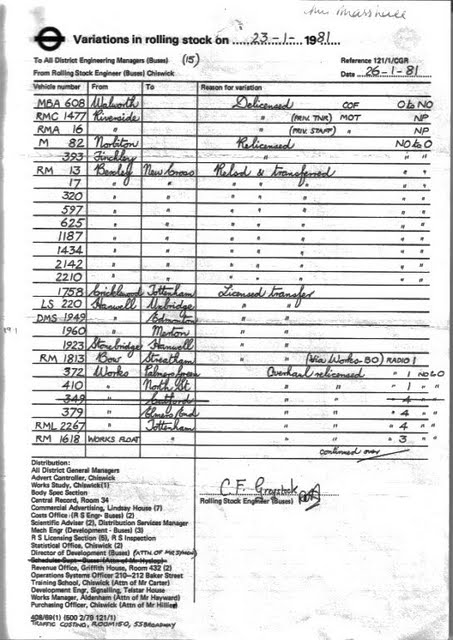 Mr Marshall
Variations in rolling stock on 23-1- 1981
To All District Engineering Managers (Buses) (15) Reference 121/1/CGR
From Rolling Stock Engineer (Buses) Chiswick Date 26-1-81
Vehicle number From To Reason for variation
MBA 608 Walworth Delicensed COF O to NO
RMC 1477 Riverside " (PRIV. TNR) MOT NP
RMA 16 " " (PRIV. STAFF) " NP
M 82 Norbiton Relicensed NO to O
393 Finchley " " "
RM 13 Bexley New Cross Relsd & transferred " "
17 " " " " " " "
320 " " " " " " "
597 " " " " " " "
625 " " " " " " "
1187 " " " " " " "
1434 " " " " " " "
2142 " " " " " " "
2210 " " " " " " "
1758 Cricklewood Tottenham Licensed transfer
LS 220 Hanwell Uxbridge " "
DMS 1949 " Edmonton " "
1960 " Merton " "
1923 Stonebridge Hanwell " "
RM 1813 Bow Streatham " " (Via Works SO) RADIO 1
372 Works Palmers Green Overhaul relicensed 1 NO to O
410 " North St " " 1 " "
349 " Catford " " 4 " "
379 " Elmers End " " 4 " "
RML 2267 " Tottenham " " 4 " "
RM 1618 WORKS FLOAT " " " 3 " "
continued over
Distribution:
All District General Managers
Advert Controller, Chiswick
Works Study, Chiswick (1)
Body Spec Section
Central Record, Room 34
Commercial Advertising, Lindsay House (7)
Costs Office (R S Engr- Buses) (2)
Scientific Adviser (2), Distribution Services Manager
Mech Engr (Development - Buses) (3)
R S Licensing Section (5), R S Inspection
Statistical Office, Chiswick (2)
Director of Development (Buses) (ATTN. OF
Schedules Dept - Buses (Attn of Mr Hyslop)
Revenue Office, Griffith House, Room 432 (2)
Operations Systems Officer 210-212 Baker Street
Training School, Chiswick (Attn of Mr Carter)
Development Engr, Signalling, Telstar House
Works Manager, Aldenham (Attn of Mr Hayward)
Purchasing Officer, Chiswick (Attn of Mr Hillier)
C. F. Graystock
Rolling Stock Engineer (Buses)
408/69(1) (500 2/79 121/1)
TRAFFIC COSTING, ROOM 150, 55 BROADWAY